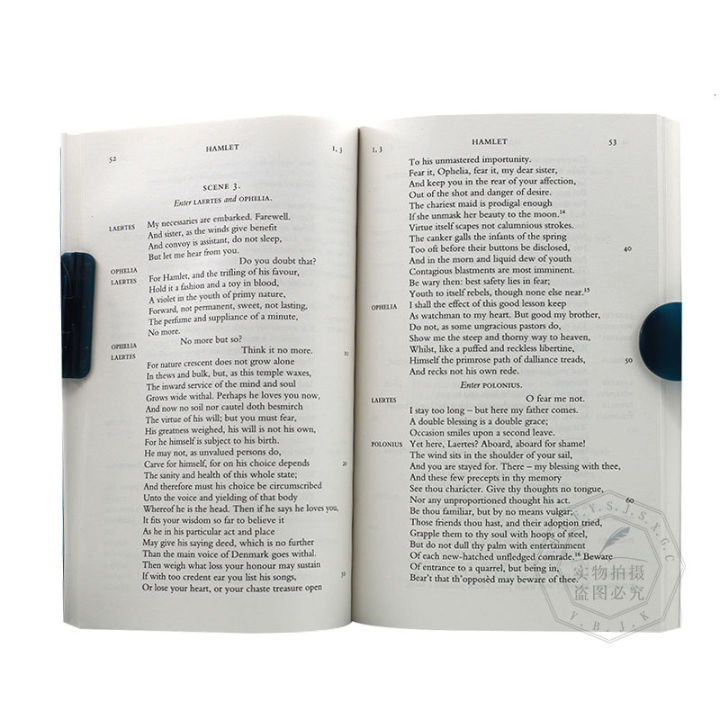 52 HAMLET I, 3
SCENE 3.
Enter LAERTES and OPHELIA.
LAERTES My necessaries are embarked. Farewell.
And sister, as the winds give benefit
And convoy is assistant, do not sleep,
But let me hear from you.
OPHELIA Do you doubt that?
LAERTES For Hamlet, and the trifling of his favour,
Hold it a fashion and a toy in blood,
A violet in the youth of primy nature,
Forward, not permanent, sweet, not lasting,
The perfume and suppliance of a minute,
No more.
OPHELIA No more but so?
LAERTES Think it no more. 10
For nature crescent does not grow alone
In thews and bulk, but, as this temple waxes,
The inward service of the mind and soul
Grows wide withal. Perhaps he loves you now,
And now no soil nor cautel doth besmirch
The virtue of his will; but you must fear,
His greatness weighed, his will is not his own,
For he himself is subject to his birth.
He may not, as unvalued persons do,
Carve for himself, for on his choice depends 20
The sanity and health of this whole state;
And therefore must his choice be circumscribed
Unto the voice and yielding of that body
Whereof he is the head. Then if he says he loves you,
It fits your wisdom so far to believe it
As he in his particular act and place
May give his saying deed, which is no further
Than the main voice of Denmark goes withal.
Then weigh what loss your honour may sustain
If with too credent ear you list his songs, 30
Or lose your heart, or your chaste treasure open
I, 3 HAMLET 53
To his unmastered importunity.
Fear it, Ophelia, fear it, my dear sister,
And keep you in the rear of your affection,
Out of the shot and danger of desire.
The chariest maid is prodigal enough
If she unmask her beauty to the moon.14
Virtue itself scapes not calumnious strokes.
The canker galls the infants of the spring
Too oft before their buttons be disclosed, 40
And in the morn and liquid dew of youth
Contagious blastments are most imminent.
Be wary then: best safety lies in fear;
Youth to itself rebels, though none else near.15
OPHELIA I shall the effect of this good lesson keep
As watchman to my heart. But good my brother,
Do not, as some ungracious pastors do,
Show me the steep and thorny way to heaven,
Whilst, like a puffed and reckless libertine,
Himself the primrose path of dalliance treads, 50
And recks not his own rede.
Enter POLONIUS.
LAERTES O fear me not.
I stay too long – but here my father comes.
A double blessing is a double grace;
Occasion smiles upon a second leave.
POLONIUS Yet here, Laertes? Aboard, aboard for shame!
The wind sits in the shoulder of your sail,
And you are stayed for. There – my blessing with thee,
And these few precepts in thy memory
See thou character. Give thy thoughts no tongue,
Nor any unproportioned thought his act. 60
Be thou familiar, but by no means vulgar;
Those friends thou hast, and their adoption tried,
Grapple them to thy soul with hoops of steel,
But do not dull thy palm with entertainment
Of each new-hatched unfledged comrade.16 Beware
Of entrance to a quarrel, but being in,
Bear't that th'opposèd may beware of thee.
Y.S.J.S.X.G.C
实物拍摄
盗图必究
Y.B.J.K